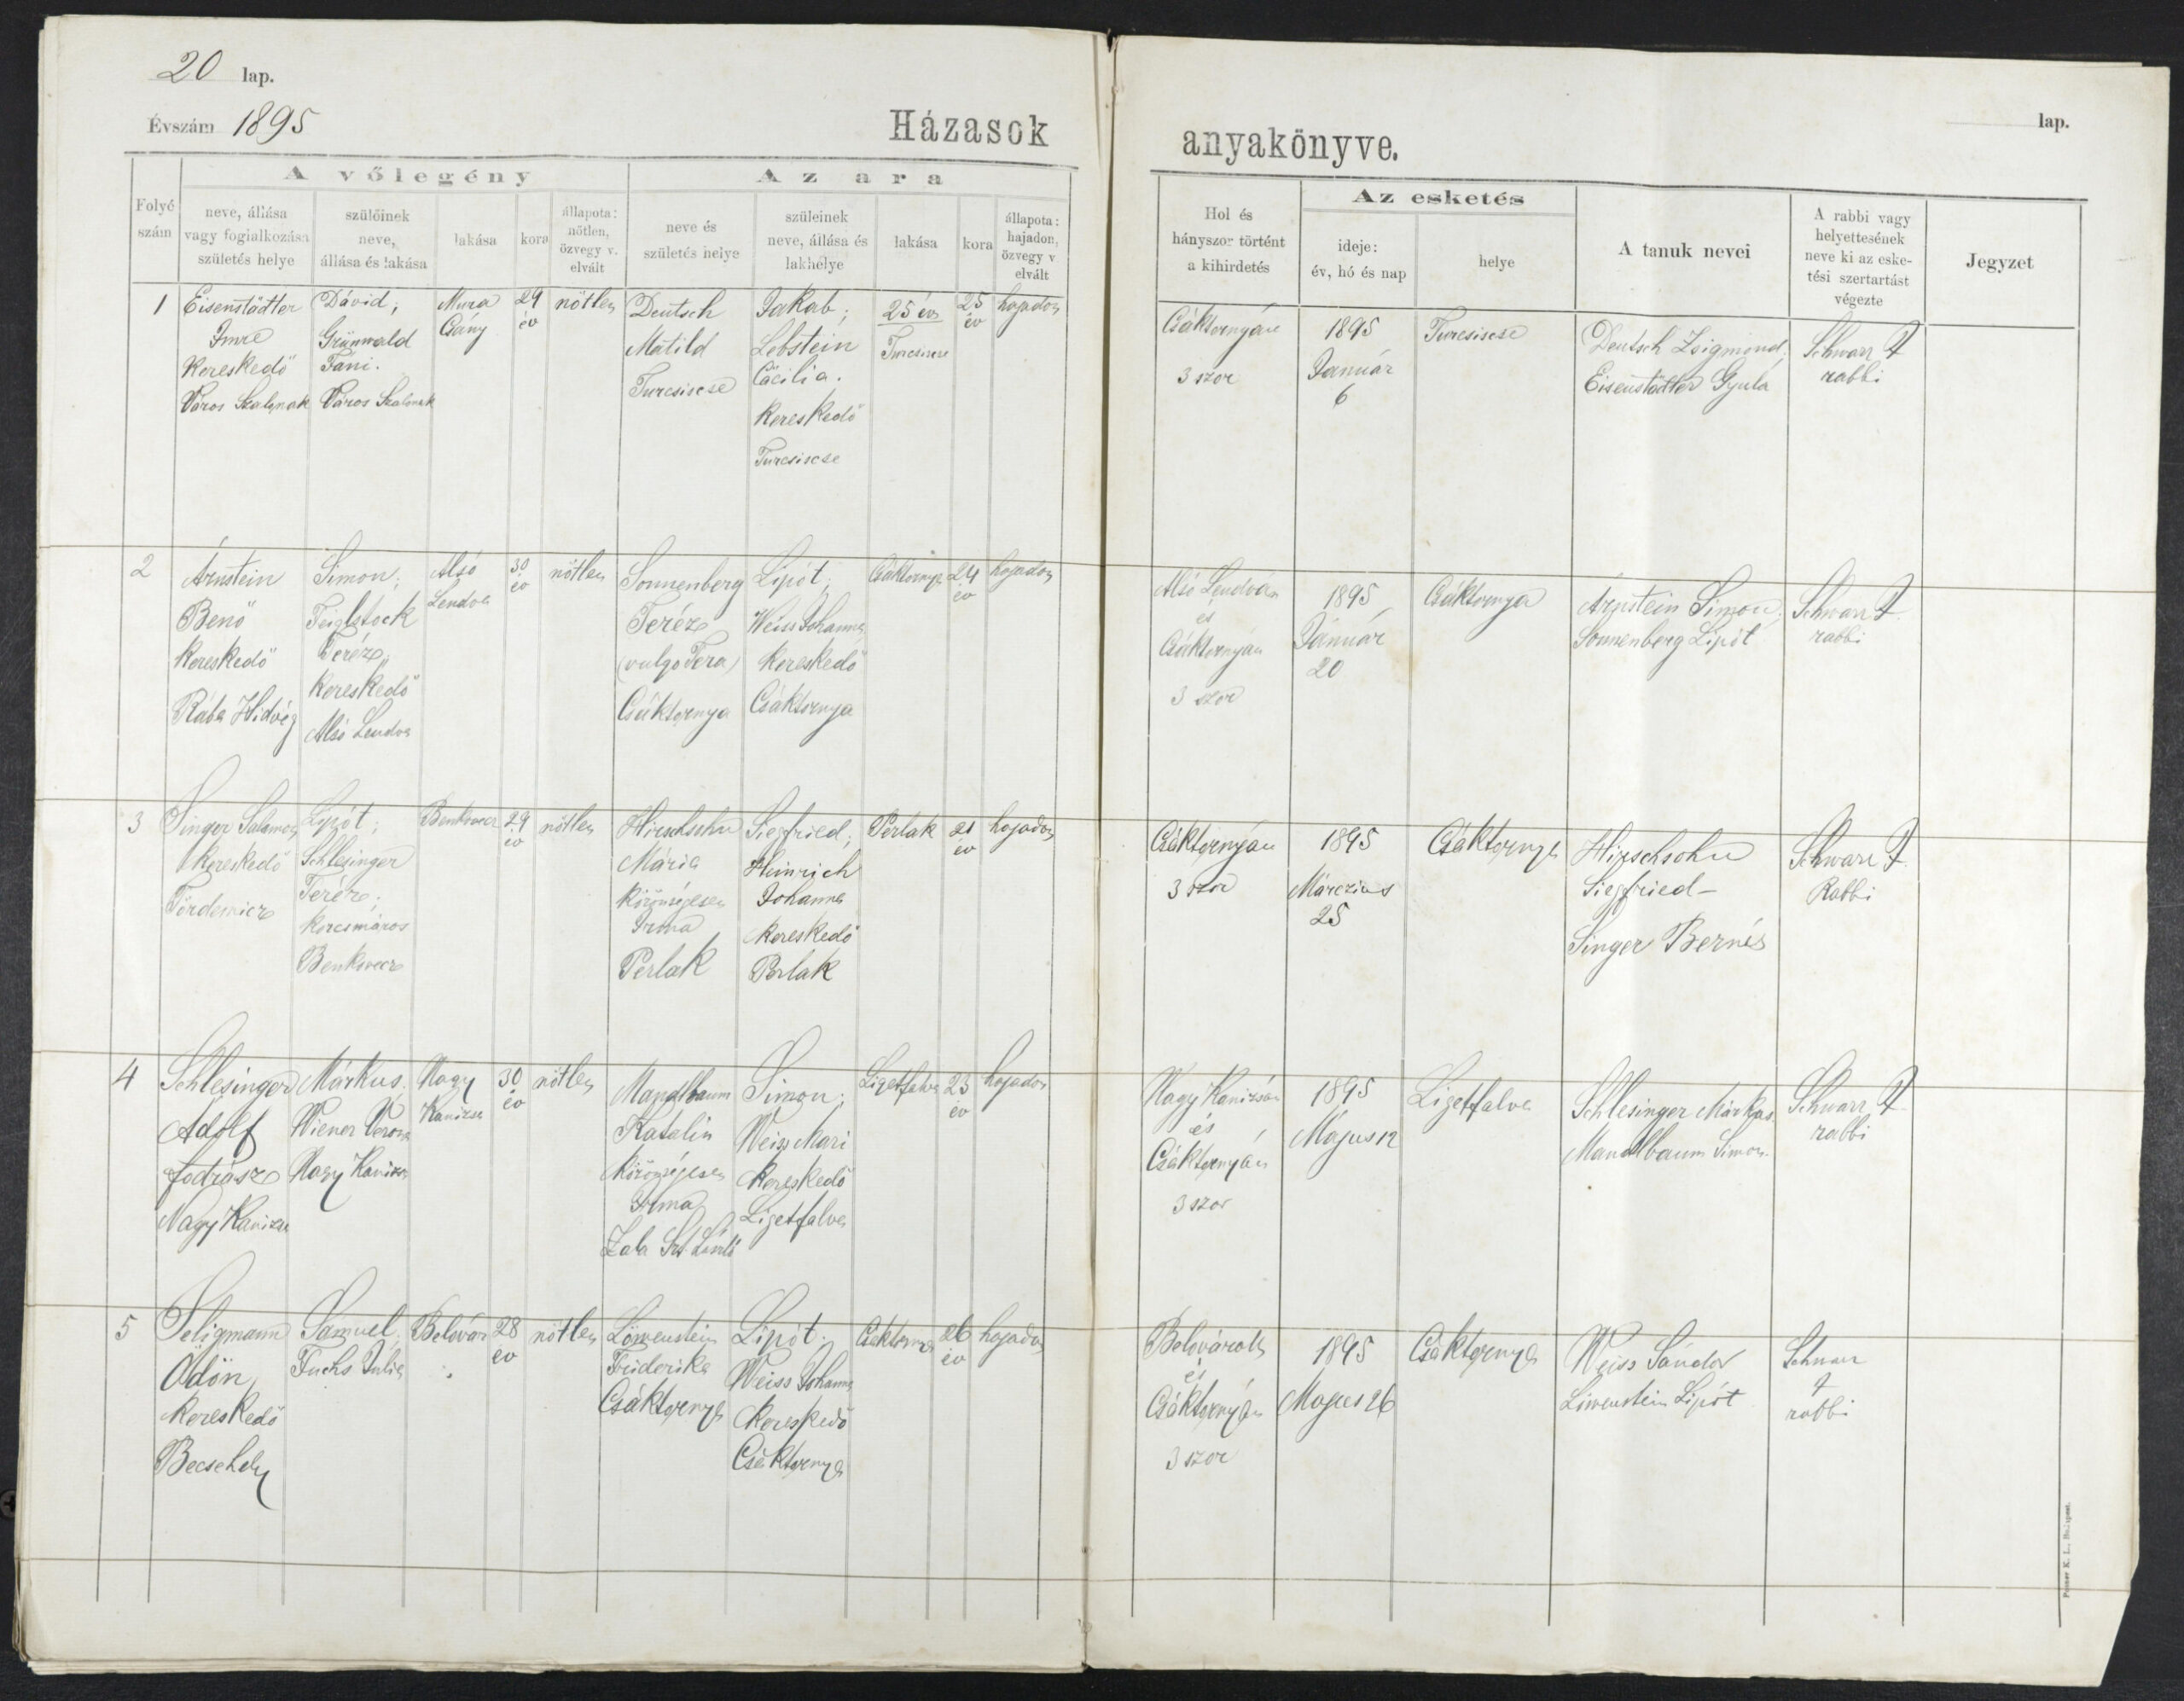 20 lap.
Évszám 1895
Házasok anyakönyve.
lap.
Folyó szám
A vőlegény
neve, állása vagy foglalkozása születés helye
szülőinek neve, állása és lakása
lakása
kora
állapota: nőtlen, özvegy v. elvált
Az ara
neve és születés helye
szüleinek neve, állása és lakhelye
lakása
kora
állapota: hajadon, özvegy v elvált
Hol és hányszor történt a kihirdetés
Az esketés
ideje: év, hó és nap
helye
A tanuk nevei
A rabbi vagy helyettesének neve ki az esketési szertartást végezte
Jegyzet
1
Eisenstädter
Imre
Kereskedő
Város Szalonak
Dávid;
Grünwald
Fáni.
Város Szalonak
Mura
Csány
29
év
nőtlen
Deutsch
Matild
Turcsiscse
Jakab;
Lebstein
Cäcilia.
Kereskedő
Turcsiscse
25 év
Turcsiscse
25
év
hajadon
Csáktornyán
3 szor
1895
Január
6
Turcsiscse
Deutsch Zsigmond,
Eisenstädter Gyula
Schwarz I
rabbi
2
Arnstein
Benő
Kereskedő
Rába Hidvég
Simon;
Feiglstock
Teréz,
kereskedő
Alsó Lendva
Alsó
Lendva
30
év
nőtlen
Sonnenberg
Teréz
(vulgo Tera)
Csáktornya
Lipót;
Weiss Johanna
kereskedő
Csáktornya
Csáktornya
24
év
hajadon
Alsó Lendván
és
Csáktornyán
3 szor
1895
Január
20
Csáktornya
Arnstein Simon,
Sonnenberg Lipót
Schwarz I
rabbi
3
Singer Salamon
Kereskedő
Tördemicz
Lipót;
Schlesinger
Teréz;
korcsmáros
29
év
nőtlen
Hirschsohn
Mária
közönségesen
Irma
Perlak
Siegfried;
Heinrich
Johanna
kereskedő
Perlak
Perlak
21
év
hajadon
Csáktornyán
3 szor
1895
Márczius
25
Csáktornya
Hirschsohn
Siegfried-
Singer Bernát
Schwarz I
Rabbi
4
Schlesinger
Adolf
fodrász
Nagy Kanizsa
Márkus,
Wiener Verona
Nagy Kanizsa
Nagy
Kanizsa
30
év
nőtlen
Mandlbaum
Katalin
közönségesen
Irma
Zala Szt. László
Simon;
Weisz Mari
Kereskedő
Ligetfalva
Ligetfalva
23
év
hajadon
Nagy Kanizsán
és
Csáktornyán
3 szor
1895
Május 12
Ligetfalva
Schlesinger Márkus
Mandlbaum Simon.
Schwarz I
rabbi
5
Seligmann
Ödön,
kereskedő
Becsehely
Samuel,
Fuchs Julia
Belovár
28
év
nőtlen
Löwenstein
Friderika
Csáktornya
Lipót;
Weiss Johanna
kereskedő
Csáktornya
Csáktornya
26
év
hajadon
Belovárott
és
Csáktornyán
3 szor
1895
Május 26
Csáktornya
Weiss Sándor
Löwenstein Lipót
Schwarz
I
rabbi